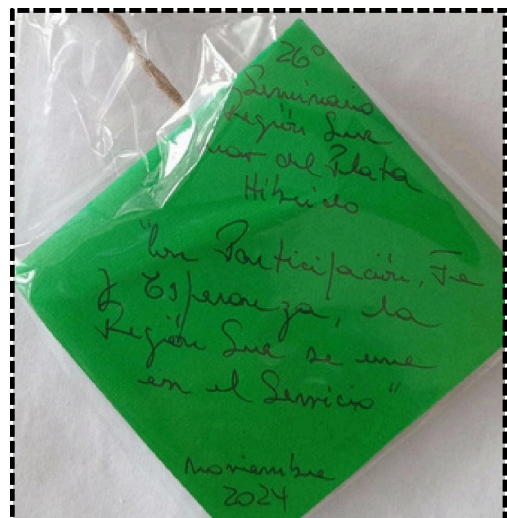 26°
Seminario
Región Sur
mar del Plata
Híbrido
"Con Participación, Fe
y Esperanza, la
Región Sur se une
en el Servicio"
noviembre
2024